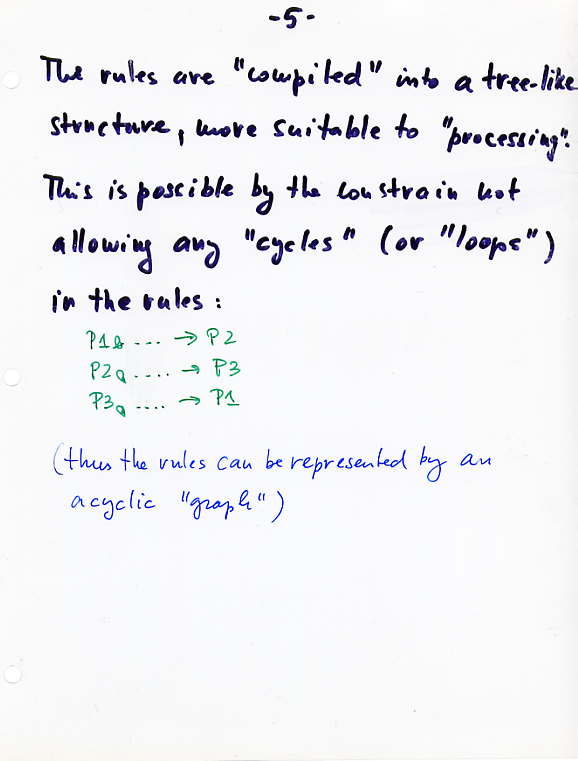 -5-
The rules are "compiled" into a tree-like
structure, more suitable to "processing".
This is possible by the constrain not
allowing any "cycles" (or "loops")
in the rules :
P1& ... → P2
P2& .... → P3
P3& .... → P1
(thus the rules can be represented by an
acyclic "graph")